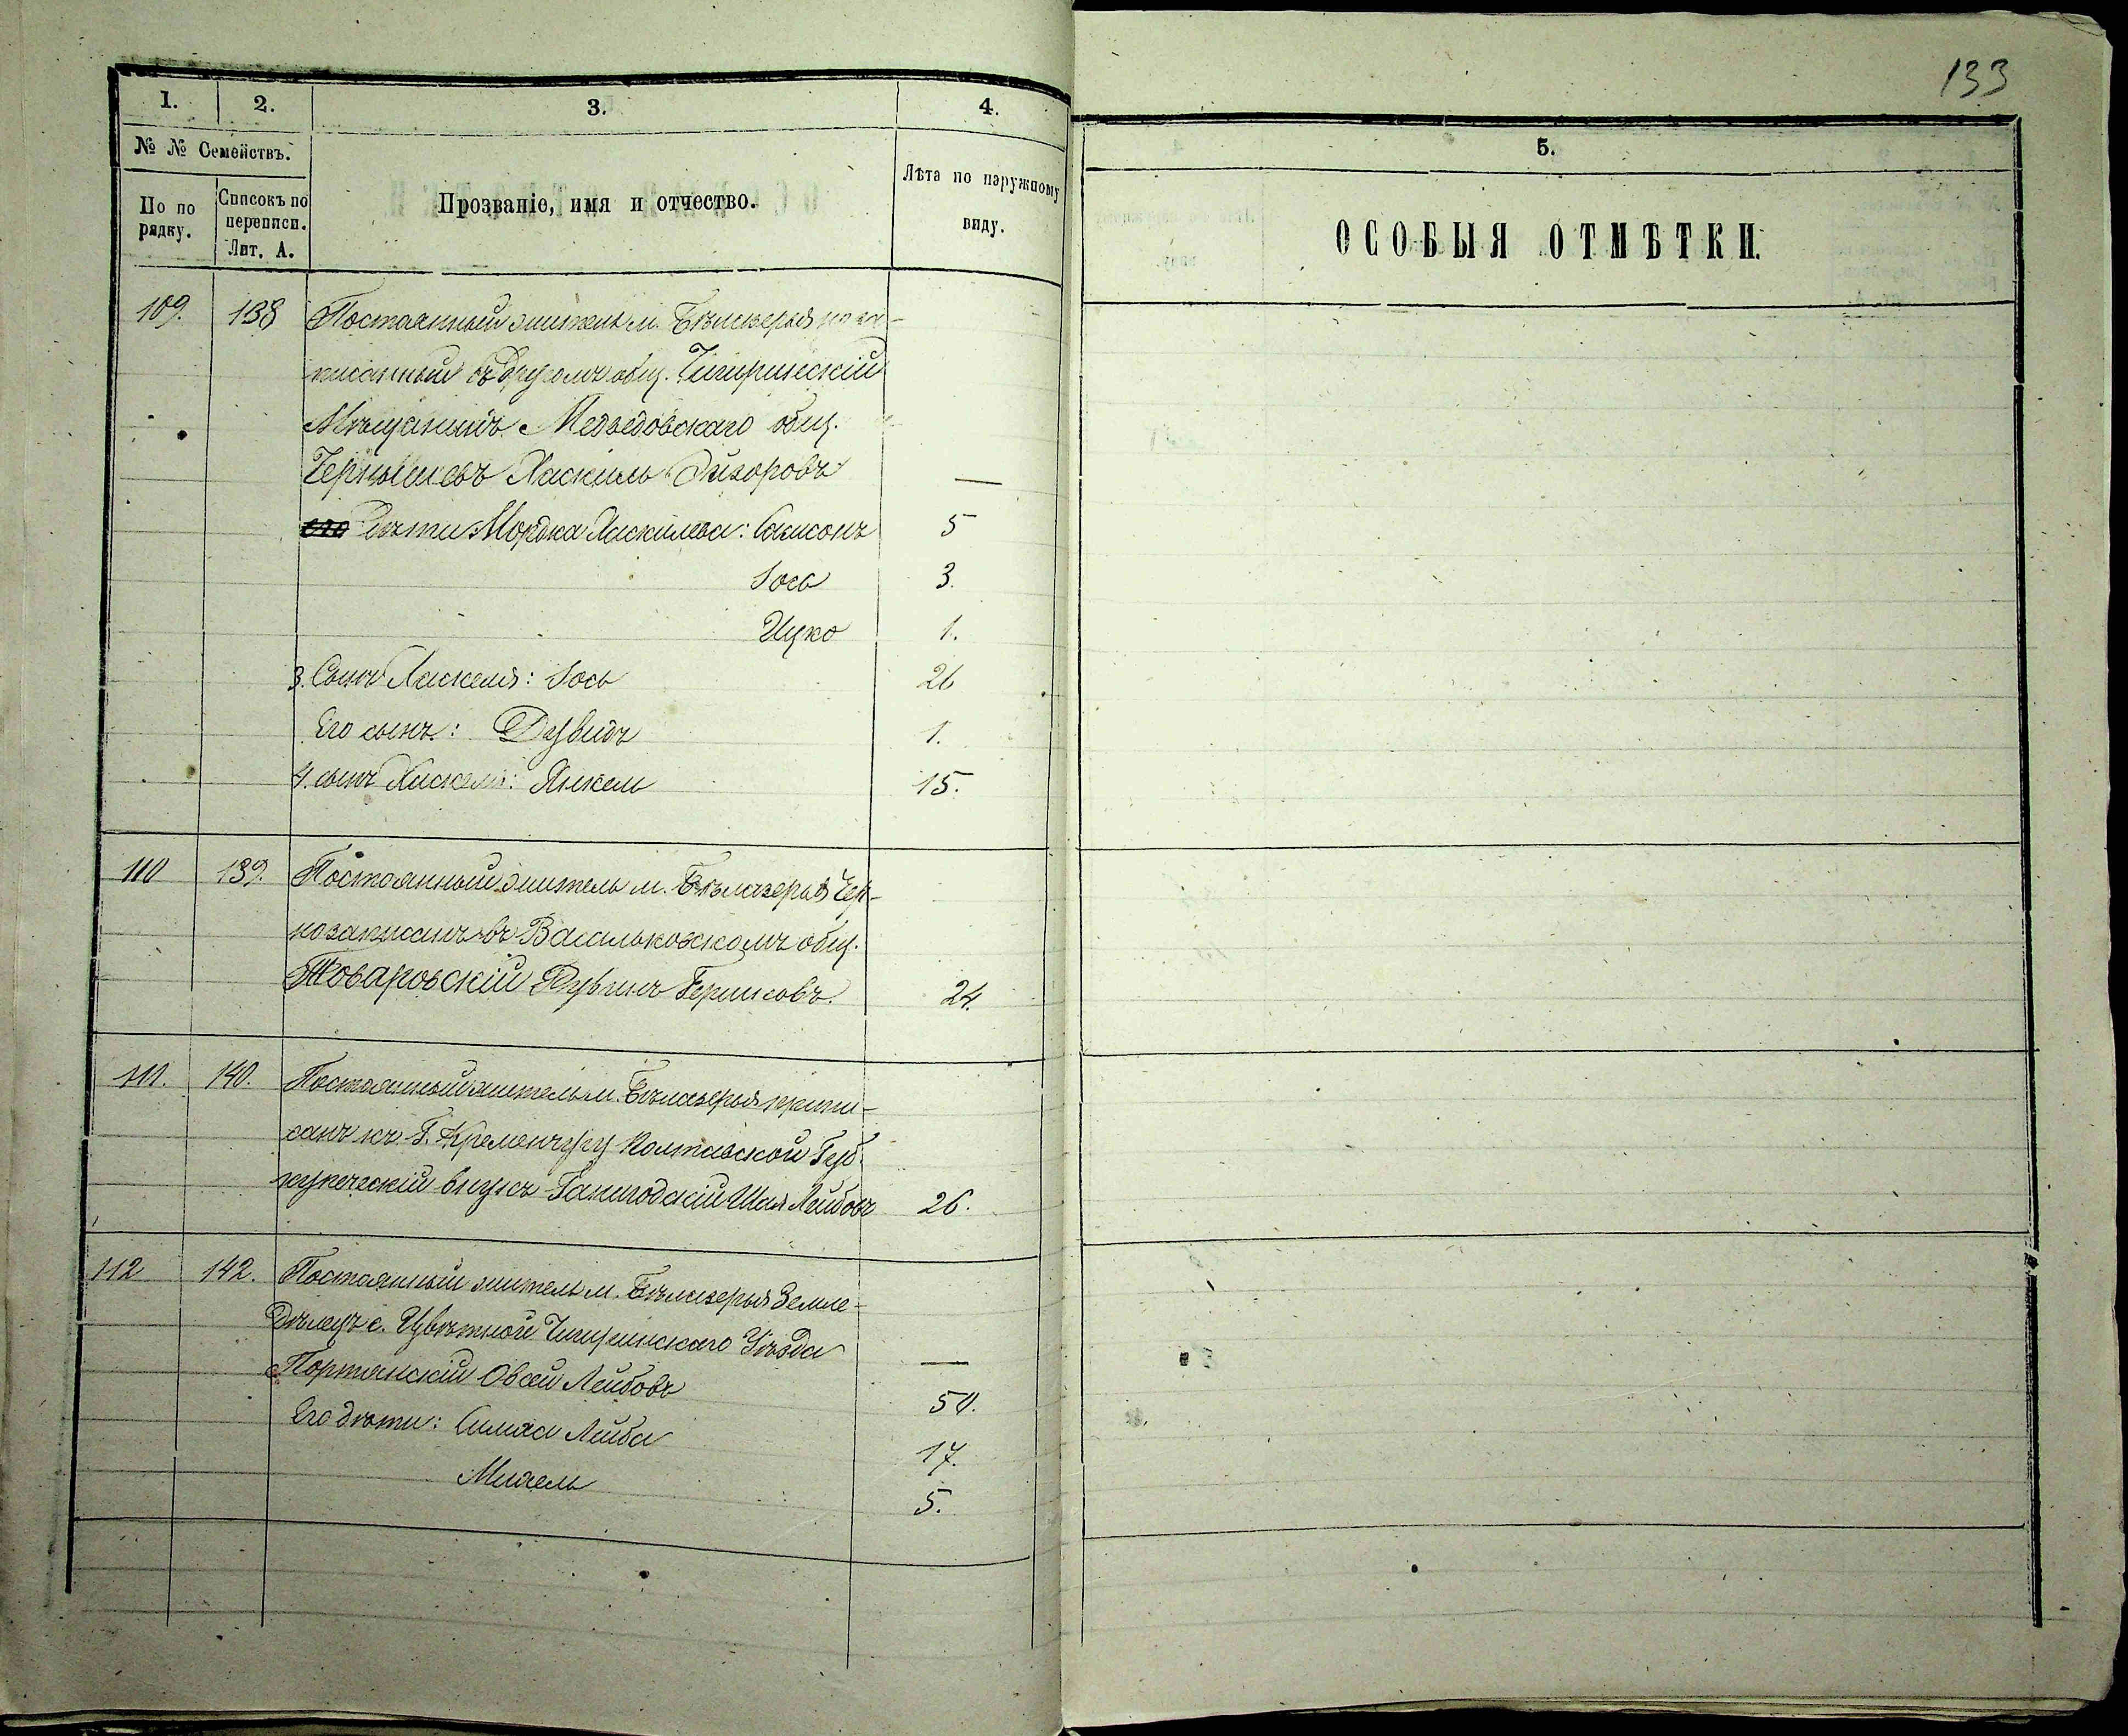 133
1. 2. 3. 4. 5.
№ № Семействъ.
По по рядку.
Списокъ по переписи. Лит. А.
Прозваніе, имя и отчество.
Лѣта по наружному виду.
ОСОБЫЯ ОТМѢТКИ.
109. 138 Постоянный житель м. Бѣлозерья
писанный въ другомъ общ. Чигиринскій
Мѣщанинъ Медведовскаго общ.
Хаскиль —
дѣти Мордка Хаскилева: Самсонъ 5
Іось 3.
Ицко 1.
3. Сынъ Хаскеля: Іось 26
Его сынъ: Дувидъ 1.
4. сынъ Хаскеля: Янкель 15.
110 139. Постоянный житель м. Бѣлозерья
общ.
Товаровскій Берковъ 24.
111. 140. Постоянный житель м. Бѣлозерья припи-
санъ къ Г. Кременчугу Полтавской Губ.
купеческій внукъ Шая Лейбовъ 26.
112 142. Постоянный житель м. Бѣлозерья Земле-
дѣлецъ с. Цвѣтной Чигиринскаго Уѣзда —
Портянскій Овсей Лейбовъ 50.
Его дѣти: Симха Лейба 17.
Михель 5.